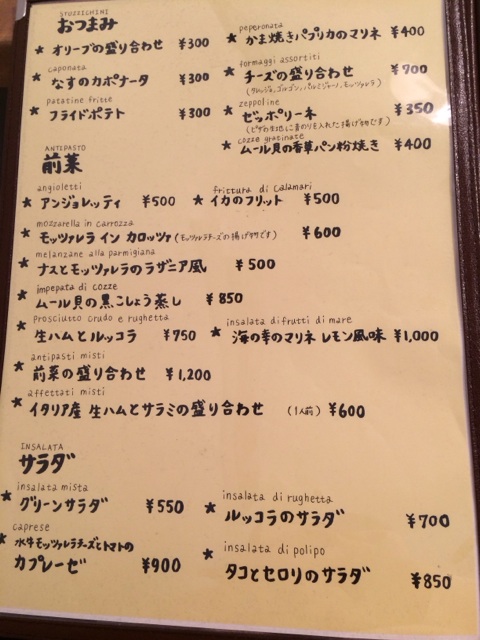 STUZZICHINI
おつまみ
★ オリーブの盛り合わせ ¥300
caponata
★ なすのカポナータ ¥300
patatine fritte
★ フライドポテト ¥300
peperonata
★ かま焼きパプリカのマリネ ¥400
formaggi assortiti
★ チーズの盛り合わせ ¥700
(タレッジョ、ゴルゴンゾーラ、パルミジャーノ、モッツァレラ)
zeppoline
★ ゼッポリーネ ¥350
(ピザの生地に青のりを入れた揚げ物です)
cozze gratinate
★ ムール貝の香草パン粉焼き ¥400
ANTIPASTO
前菜
angioletti
★ アンジョレッティ ¥500
frittura di calamari
★ イカのフリット ¥500
mozzarella in carrozza
★ モッツァレラ イン カロッツァ (モッツァレラチーズの揚げ物です) ¥600
melanzane alla parmigiana
★ ナスとモッツァレラのラザニア風 ¥500
impepata di cozze
★ ムール貝の黒こしょう蒸し ¥850
prosciutto crudo e rughetta
★ 生ハムとルッコラ ¥750
insalata di frutti di mare
★ 海の幸のマリネ レモン風味 ¥1,000
antipasti misti
★ 前菜の盛り合わせ ¥1,200
affettati misti
★ イタリア産 生ハムとサラミの盛り合わせ (1人前) ¥600
INSALATA
サラダ
insalata mista
★ グリーンサラダ ¥550
insalata di rughetta
★ ルッコラのサラダ ¥700
caprese
★ 水牛モッツァレラチーズとトマトの
カプレーゼ ¥900
insalata di polipo
★ タコとセロリのサラダ ¥850